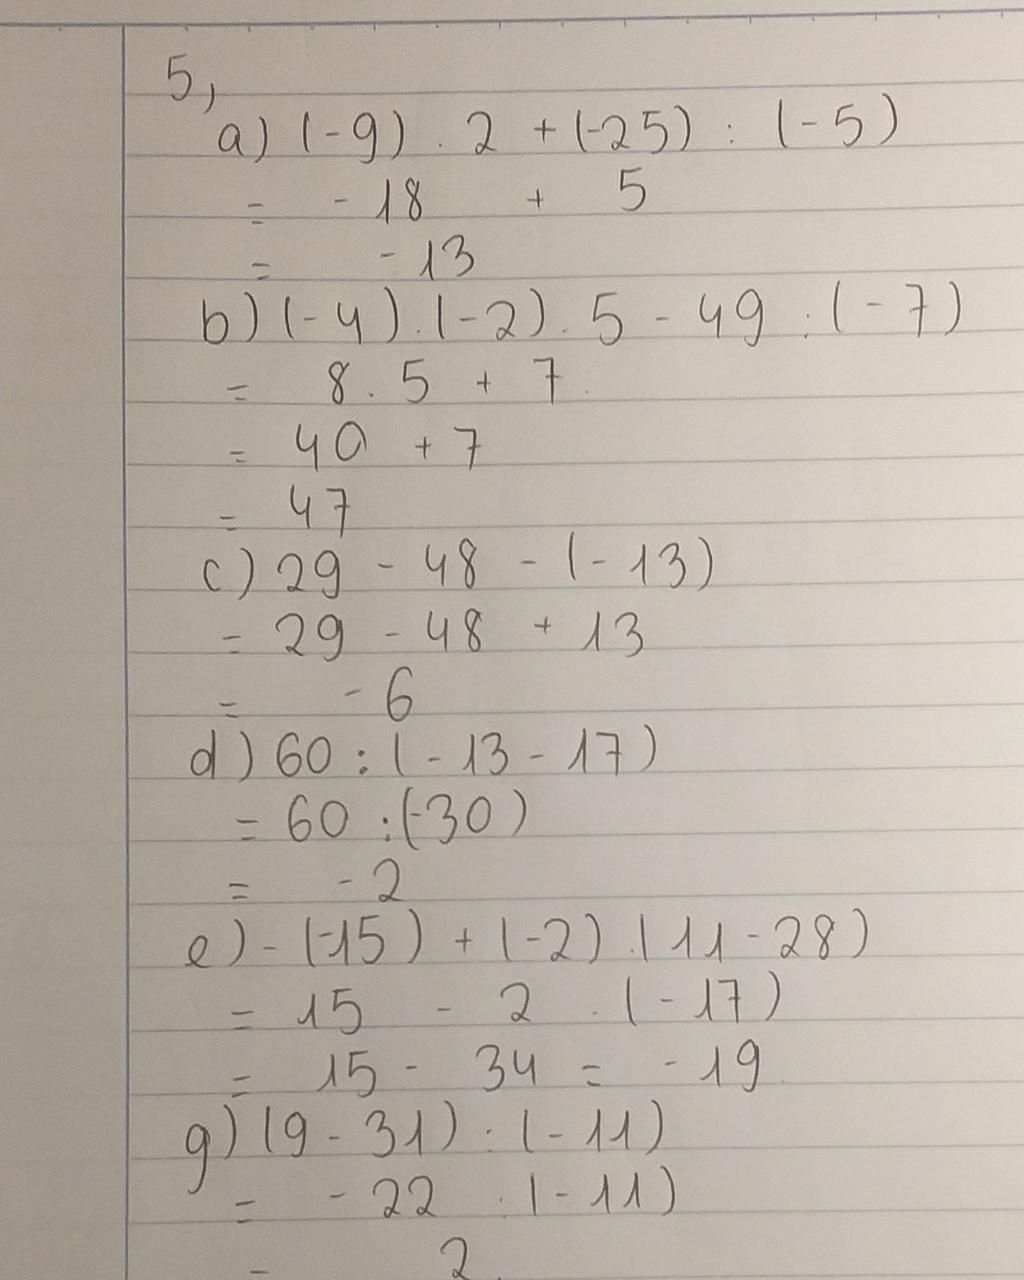 5,
a) (-9) . 2 + (-25) : (-5)
= -18 + 5
= -13
b) (-4) . (-2) . 5 - 49 : (-7)
= 8 . 5 + 7
= 40 + 7
= 47
c) 29 - 48 - (-13)
= 29 - 48 + 13
= -6
d) 60 : (-13 - 17)
= 60 : (-30)
= -2
e) - (-15) + (-2) . (11 - 28)
= 15 - 2 . (-17)
= 15 - 34 = -19
g) (9 - 31) : (-11)
= -22 : (-11)
= 2